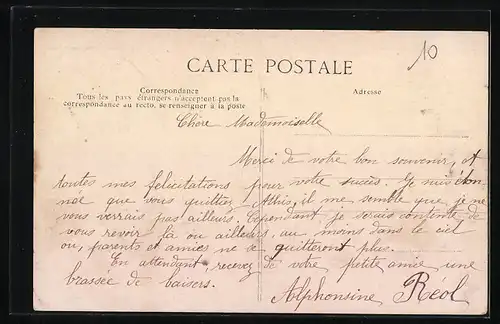 10
CARTE POSTALE
Correspondance
Tous les pays étrangers n'acceptent pas la
correspondance au recto, se renseigner à la poste
Adresse
Chère Mademoiselle
Merci de votre bon souvenir, et
toutes mes félicitations pour votre succès. Je suis éton-
née que vous quittiez Athis, il me semble que je ne
vous verrais pas ailleurs. Cependant je serais contente de
vous revoir là ou ailleurs, au moins dans le ciel
ou, parents et amies ne se quitteront plus.
En attendant, recevez de votre petite amie une
brassée de baisers.
Alphonsine Reol